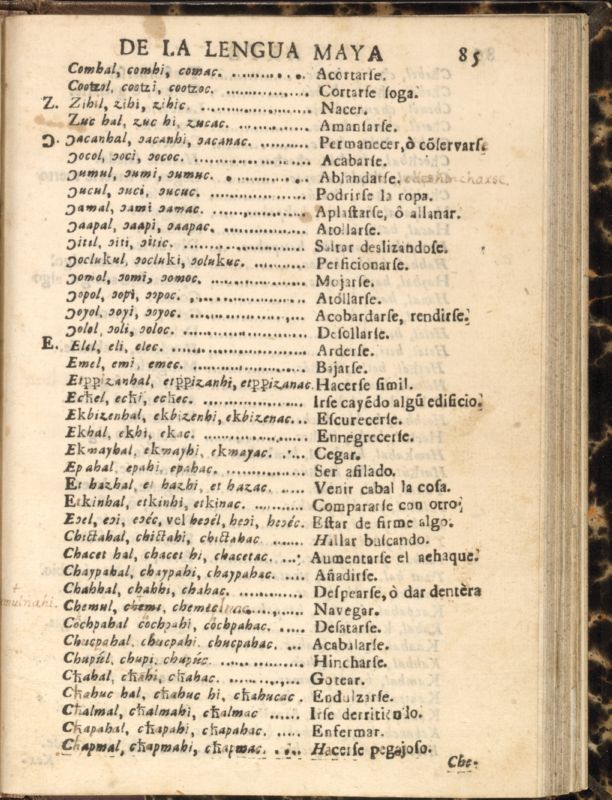 DE LA LENGUA MAYA 85
Comhal, comhi, comac. .......... Acòrtarſe.
Cootzol, cootzi, cootzoc. .......... Cortarſe ſoga.
Z. Zihil, zihi, zihic. .......... Nacer.
Zuc hal, zuc hi, zucac. .......... Amanſarſe.
Ɔ. ɔacanhal, ɔacanhi, ɔacanac. .......... Permanecer, ò cõſervarſe
ɔocol, ɔoci, ɔococ. .......... Acabarſe.
ɔumul, ɔumi, ɔumuc. .......... Ablandarſe.
ɔucul, ɔuci, ɔucuc. .......... Podrirſe la ropa.
ɔamal, ɔami ɔamac. .......... Aplaſtarſe, ô allanar.
ɔaapal, ɔaapi, ɔaapac. .......... Atollarſe.
ɔitil, ɔiti, ɔitic. .......... Saltar deslizandoſe.
ɔoclukul, ɔocluki, ɔolukuc. .......... Perficionarſe.
ɔomol, ɔomi, ɔomoc. .......... Mojarſe.
ɔopol, ɔopi, ɔɔpoc. .......... Atóllarſe.
ɔoyol, ɔoyi, ɔoyoc. .......... Acobardarſe, rendirſe.
ɔolol, ɔoli, ɔoloc. .......... Deſollarſe.
E. Elel, eli, elec. .......... Arderſe.
Emel, emi, emec. .......... Bajarſe.
Etp̱p̱izanhal, etp̱p̱izanhi, etp̱p̱izanac. Hacerſe ſimil.
Ecħel, ecħi, ecħec. .......... Irſe cayẽdo algũ edificio.
Ekbizenhal, ekbizenhi, ekbizenac... Eſcurecerſe.
Ekhal, ekhi, ekac. .......... Ennegrecerſe.
Ekmayhal, ekmayhi, ekmayac. .... Cegar.
Epahal, epahi, epahac. .......... Ser afilado.
Et hazhal, et hazhi, et hazac. ..... Venir cabal la coſa.
Etkinhal, etkinhi, etkinac. .......... Compararſe con otro.
Eɔel, eɔi, eɔéc, vel heɔél, heɔi, heɔéc. Eſtar de firme algo.
Chictahal, chictahi, chictahac. ....... Hallar buſcando.
Chacet hal, chacet hi, chacetac. .... Aumentarſe el aehaque.
Chaypahal, chaypahi, chaypahac. .... Añadirſe.
Chahhal, chahhi, chahac. .......... Deſpearſe, ò dar dentèra
Chemul, chemi, chemec .......... Navegar.
Cöchpahal cöchpahi, cöchpahac. ..... Deſatarſe.
Chucpahal, chucpahi, chucpahac. ... Acabalarſe.
Chupúl, chupi, chupúc. .......... Hincharſe.
Cħahal, cħahi, cħahac. .......... Gotear.
Cħahuc hal, cħahuc hi, cħahucac . Endulzarſe.
Cħalmal, cħalmahi, cħalmac ...... Irſe derritiendo.
Cħapahal, cħapahi, cħapahac. ..... Enfermar.
Cħapmal, cħapmahi, cħapmac. ..... Hacerſe pegajoſo.
Che-